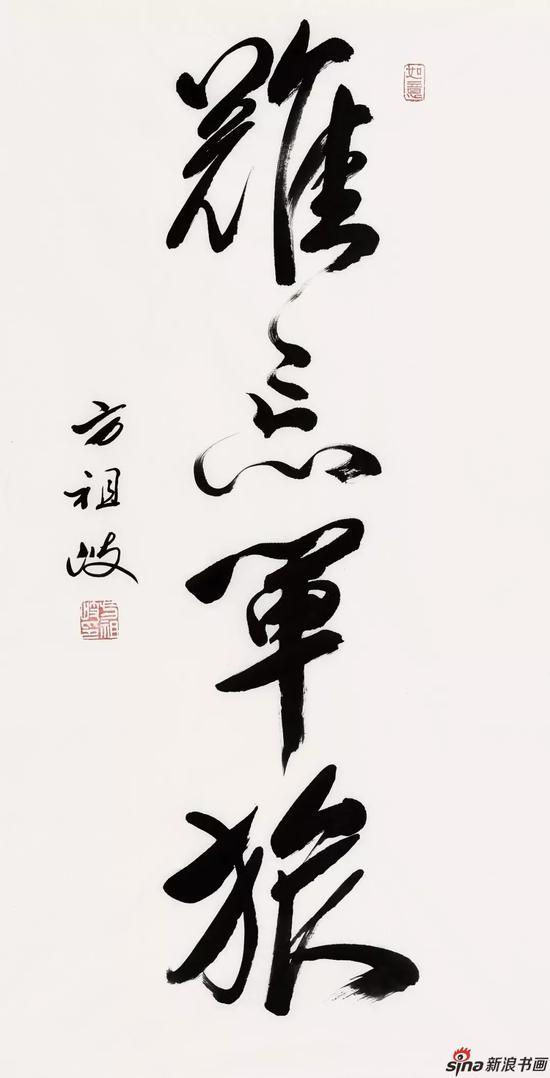 難忘軍旅
如意
方祖岐
方祖岐印
sina新浪书画